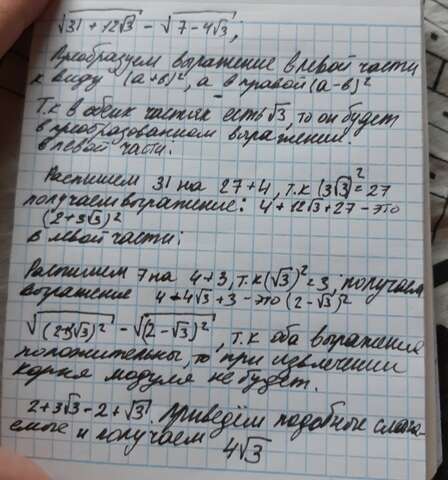 √31 + 12√3 - √7 - 4√3;
Преобразуем выражение в левой части
к виду (a+b)², а в правой (a-b)²
Т.к в обеих частях есть √3, то он будет
в преобразованном выражении.
В левой части:
Распишем 31 на 27+4, т.к (3√3)² = 27
получаем выражение: 4+12√3+27 - это
(2+3√3)²
В левой части:
Распишем 7 на 4+3, т.к (√3)²=3, получаем
выражение 4-4√3+3 - это (2-√3)²
√(2+3√3)² - √(2-√3)², т.к оба выражения
положительны, то при извлечении
корня модуля не будет.
2+3√3-2+√3. Приведём подобные слага-
емые и получаем 4√3